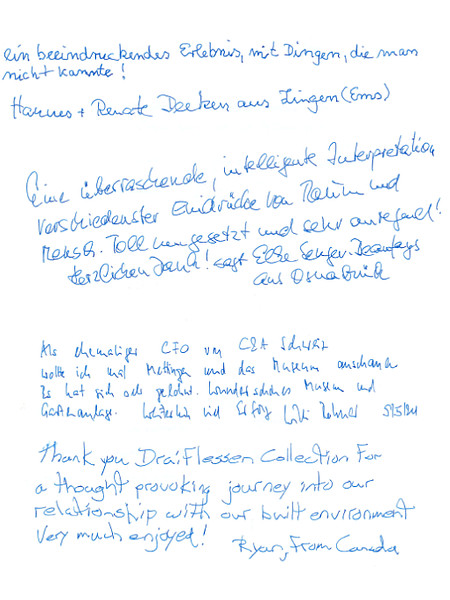 ein beeindruckendes Erlebnis, mit Dingen, die man
nicht kannte!
Hannes + Renate Deeken aus Lingen (Ems)
Eine überraschende, intelligente Interpretation
verschiedenster Eindrücke von Raum und
Mensch. Toll umgesetzt und sehr anregend!
Herzlichen Dank! sagt Elke
aus Osnabrück
Als ehemaliger CFO von C&A Schweiz
wollte ich mal Mettingen und das Museum anschauen
Es hat sich gelohnt. Wunderschönes Museum und
Gartenanlage. Weiterhin viel Erfolg
Thank you Draiflessen Collection For
a thought provoking journey into our
relationship with our built environment
Very much enjoyed! Ryan, From Canada